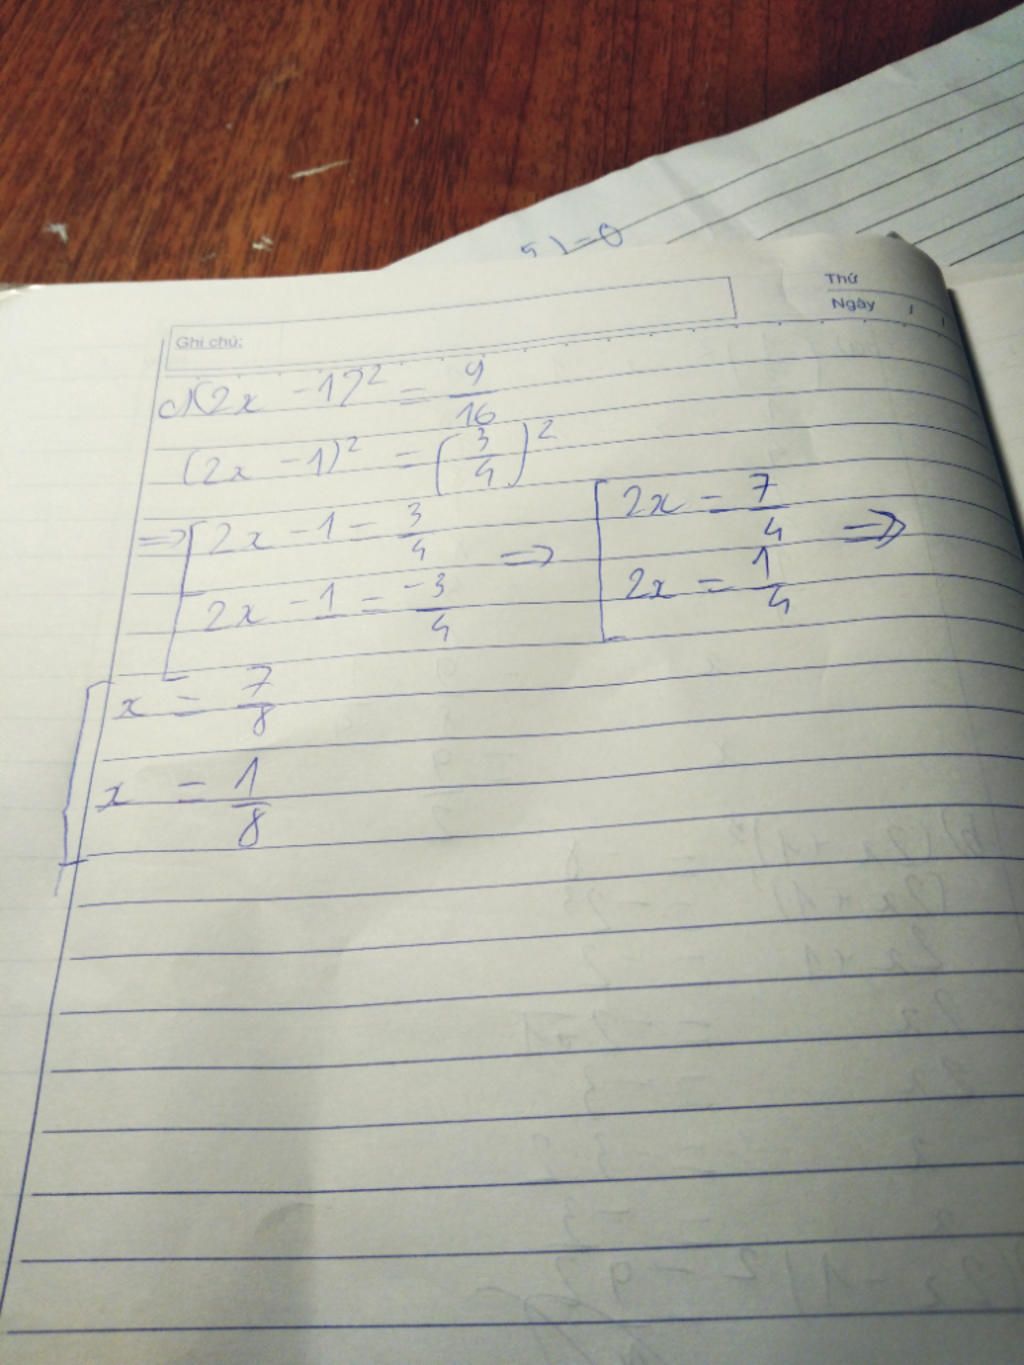 5)=0
Thứ
Ngày / /
Ghi chú:
c)(2x - 1)² = 9/16
(2x - 1)² = (3/4)²
=> [ 2x - 1 = 3/4 => [ 2x = 7/4 =>
2x - 1 = -3/4 2x = 1/4
[ x = 7/8
x = 1/8